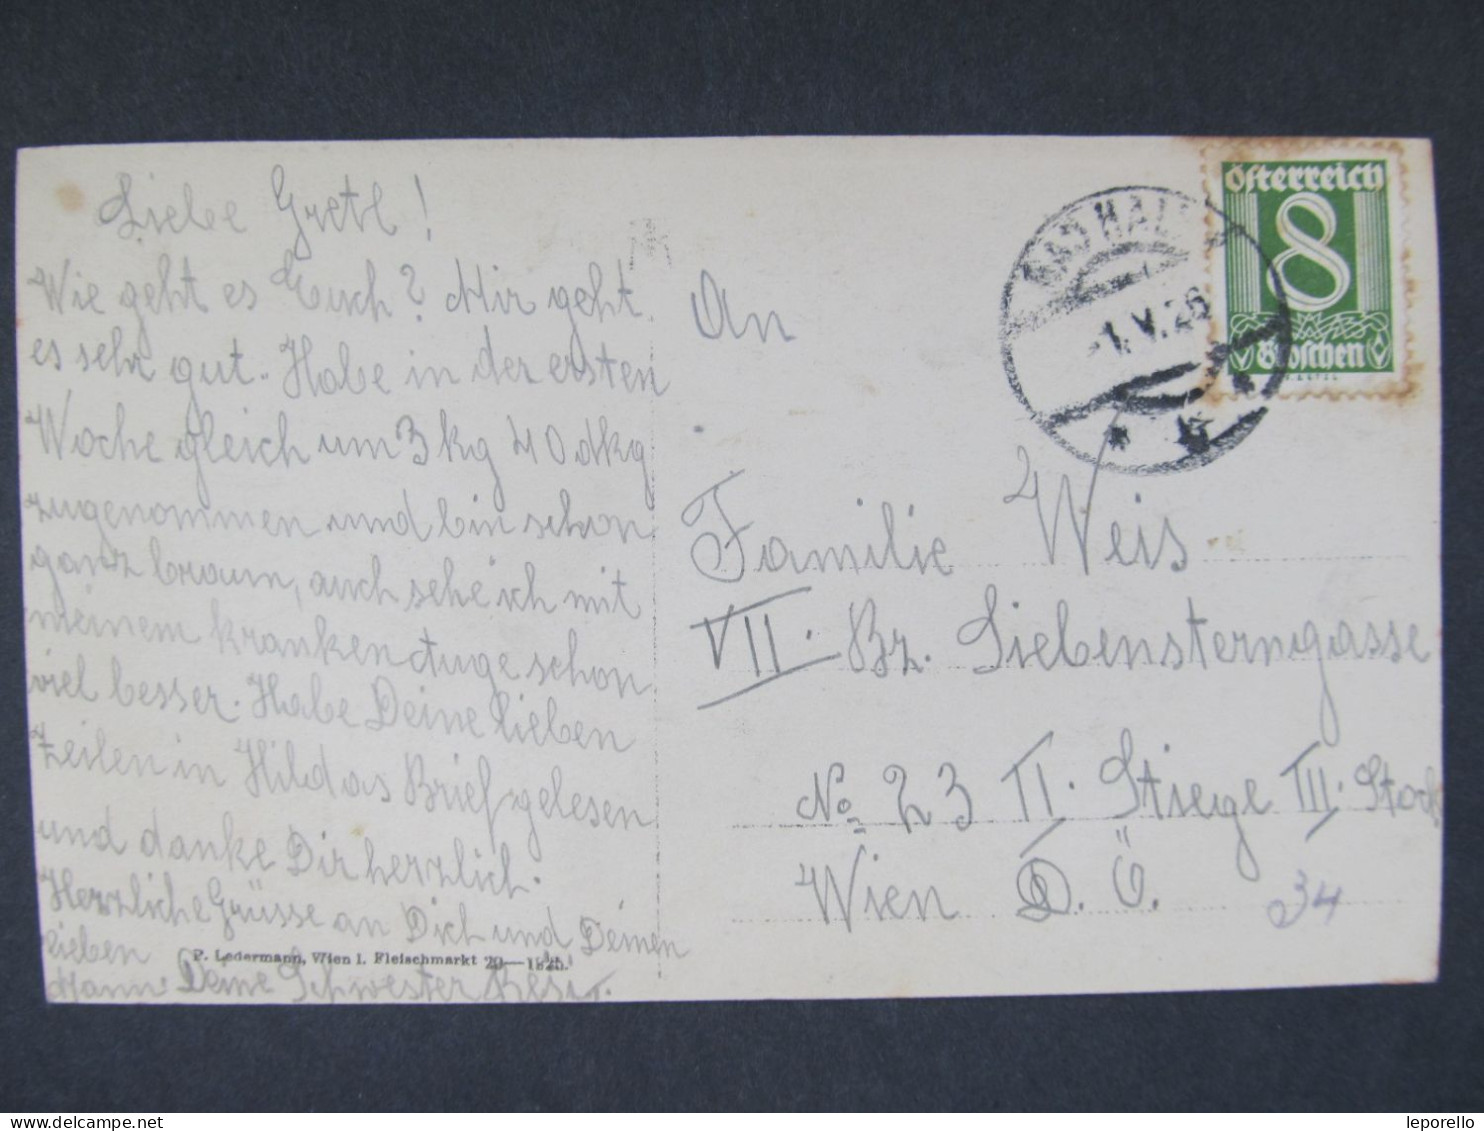 Liebe Gretl!
Wie geht es Euch? Mir geht
es sehr gut. Habe in der ersten
Woche gleich um 3 kg 40 dkg
zugenommen und bin schon
ganz braun, auch sehe ich mit
meinem kranken Auge schon
viel besser. Habe Deine lieben
Zeilen in Hildas Brief gelesen
und danke Dir herzlich.
Herzliche Grüsse an Dich und Deinen
lieben
Mann: Deine Schwester Resi.
P. Ledermann, Wien I. Fleischmarkt 20—1925.
Österreich
8
Groschen
BAD HALL
1.V.26
An
Familie Weis
VII. Bz. Siebensterngasse
No 23 II. Stiege III. Stock
Wien D. Ö.
34
leporello